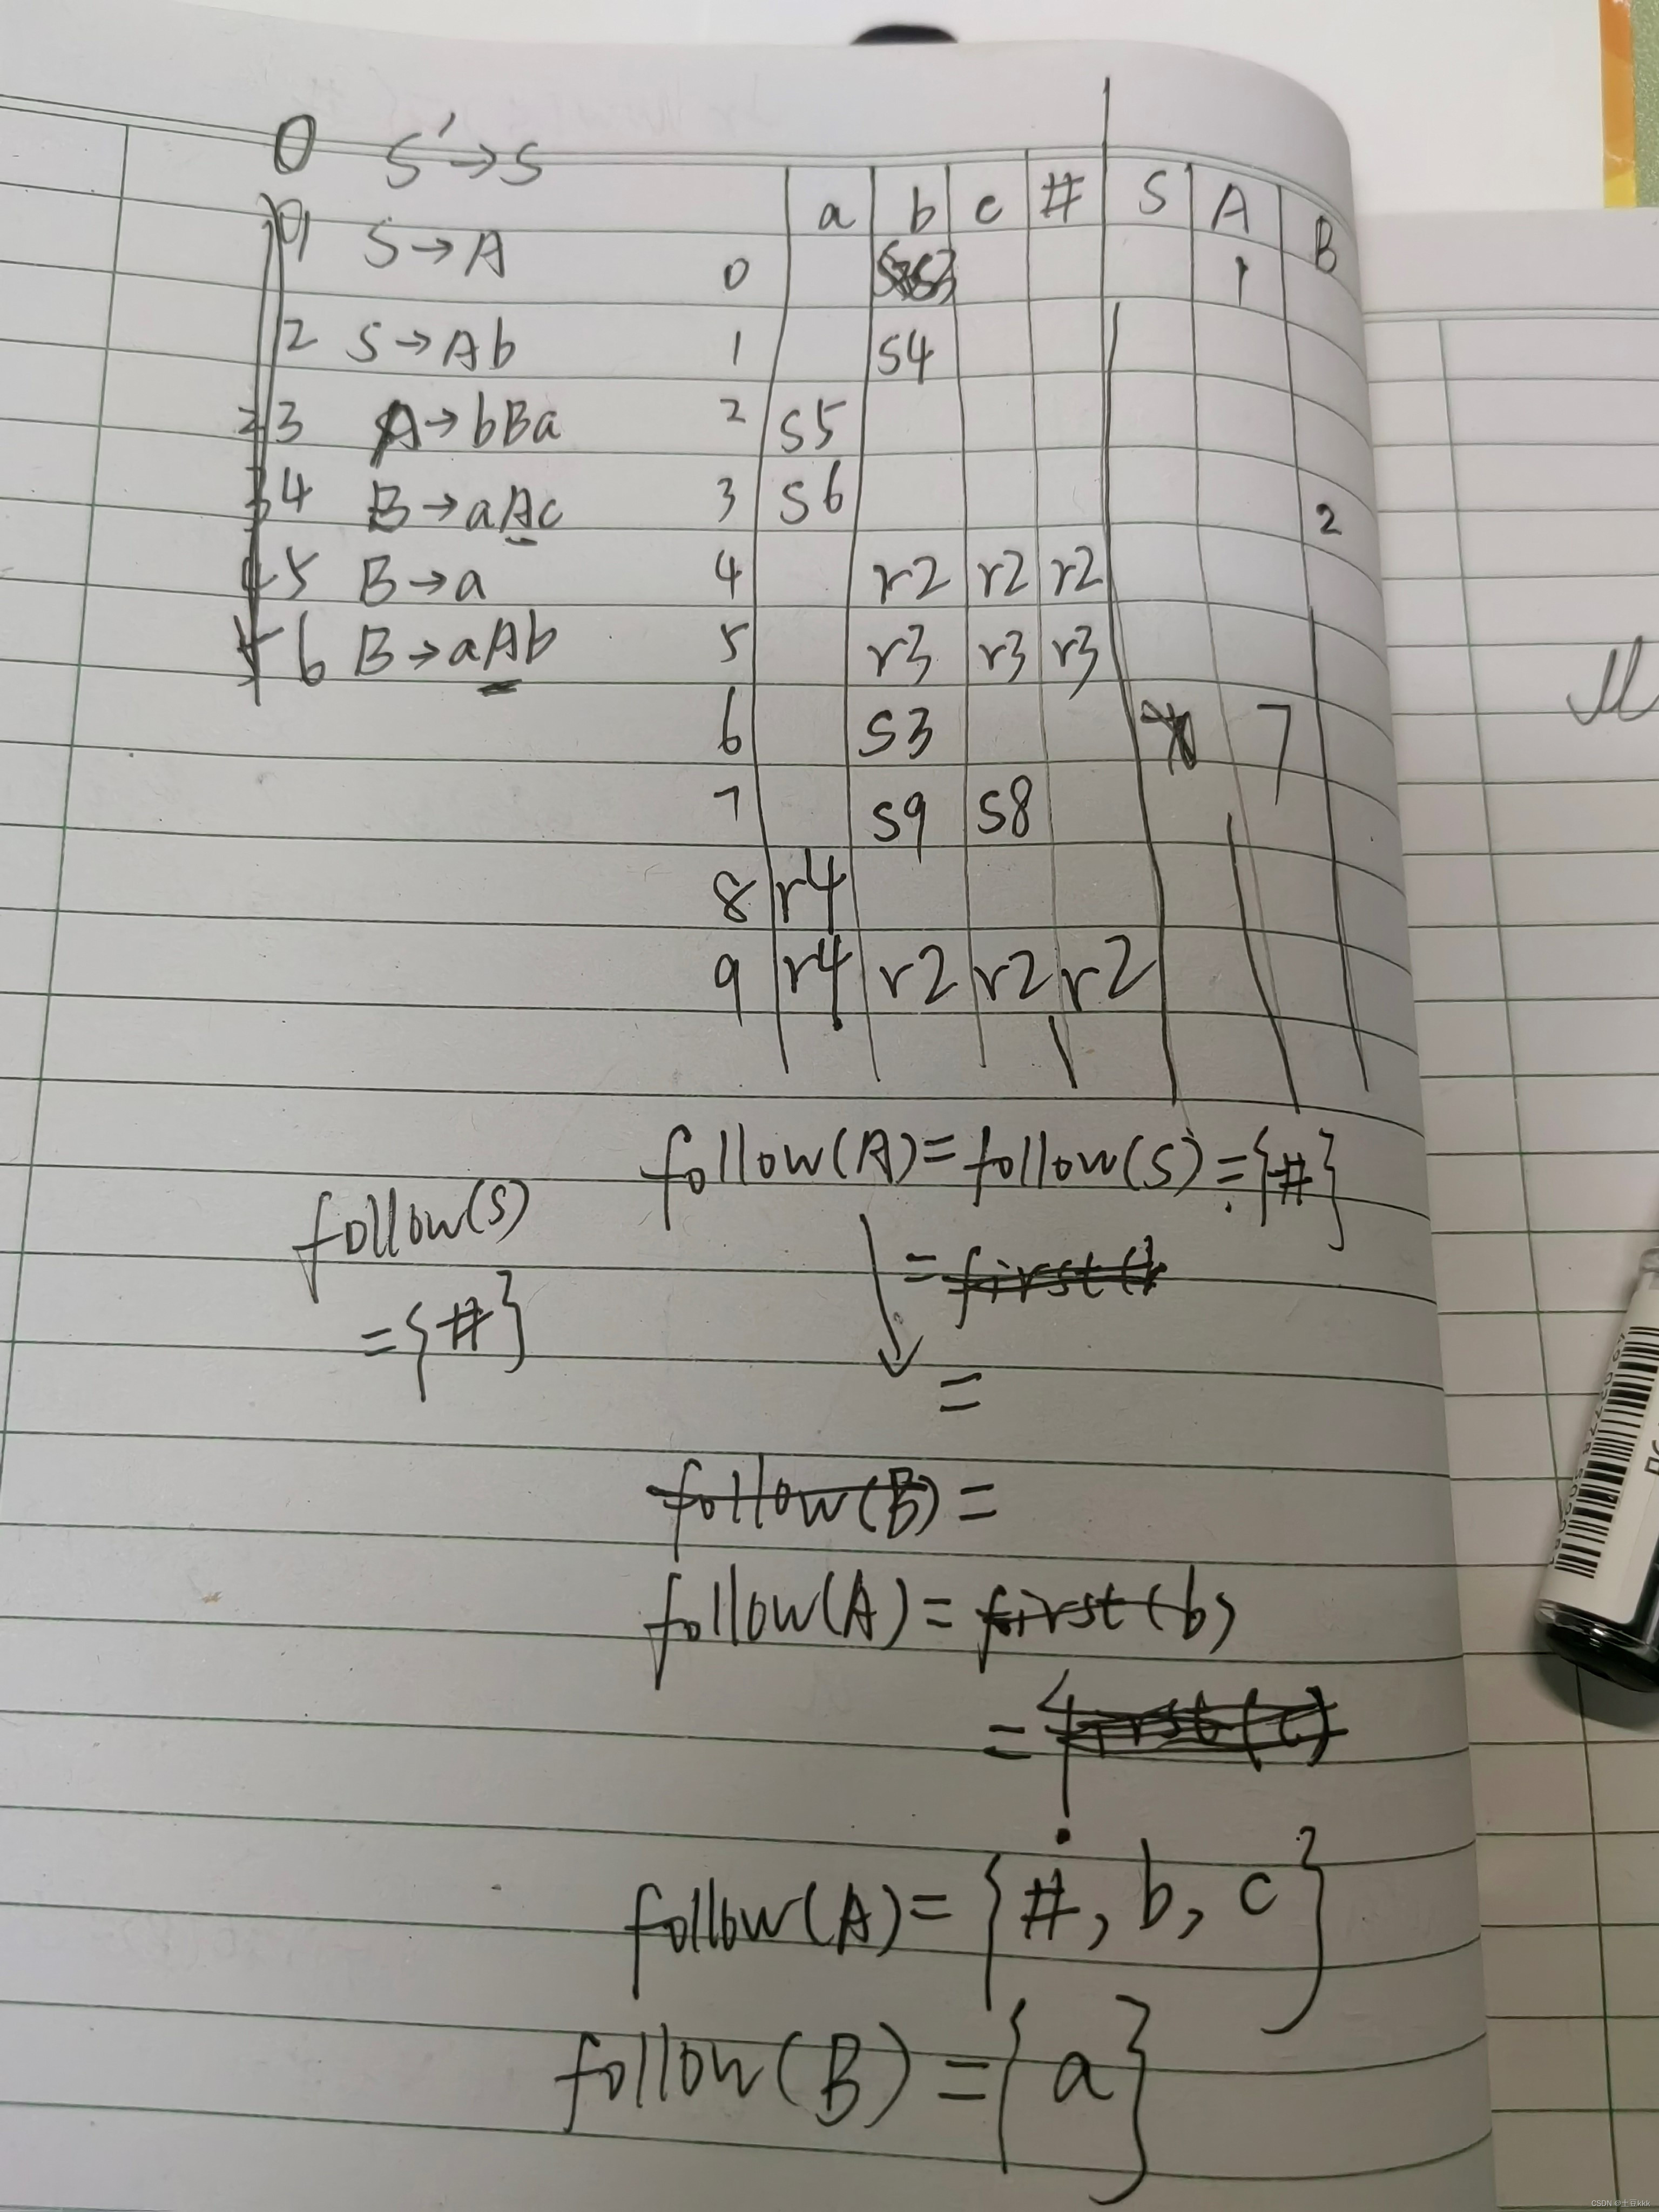 0 S'→S
1 S→A
2 S→Ab
3 A→bBa
4 B→aAc
5 B→a
6 B→aAb
a b c # S A B
0 S3 1
1 S4
2 S5
3 S6 2
4 r2 r2 r2
5 r3 r3 r3
6 S3 7
7 S9 S8
8 r4
9 r4 r2 r2 r2
follow(A)=follow(S)={#}
follow(S)
={#}
=first(
=
follow(B)=
follow(A)=first(b)
=first(c)
follow(A)={#,b,c}
follow(B)={a}
CSDN @土豆kkk